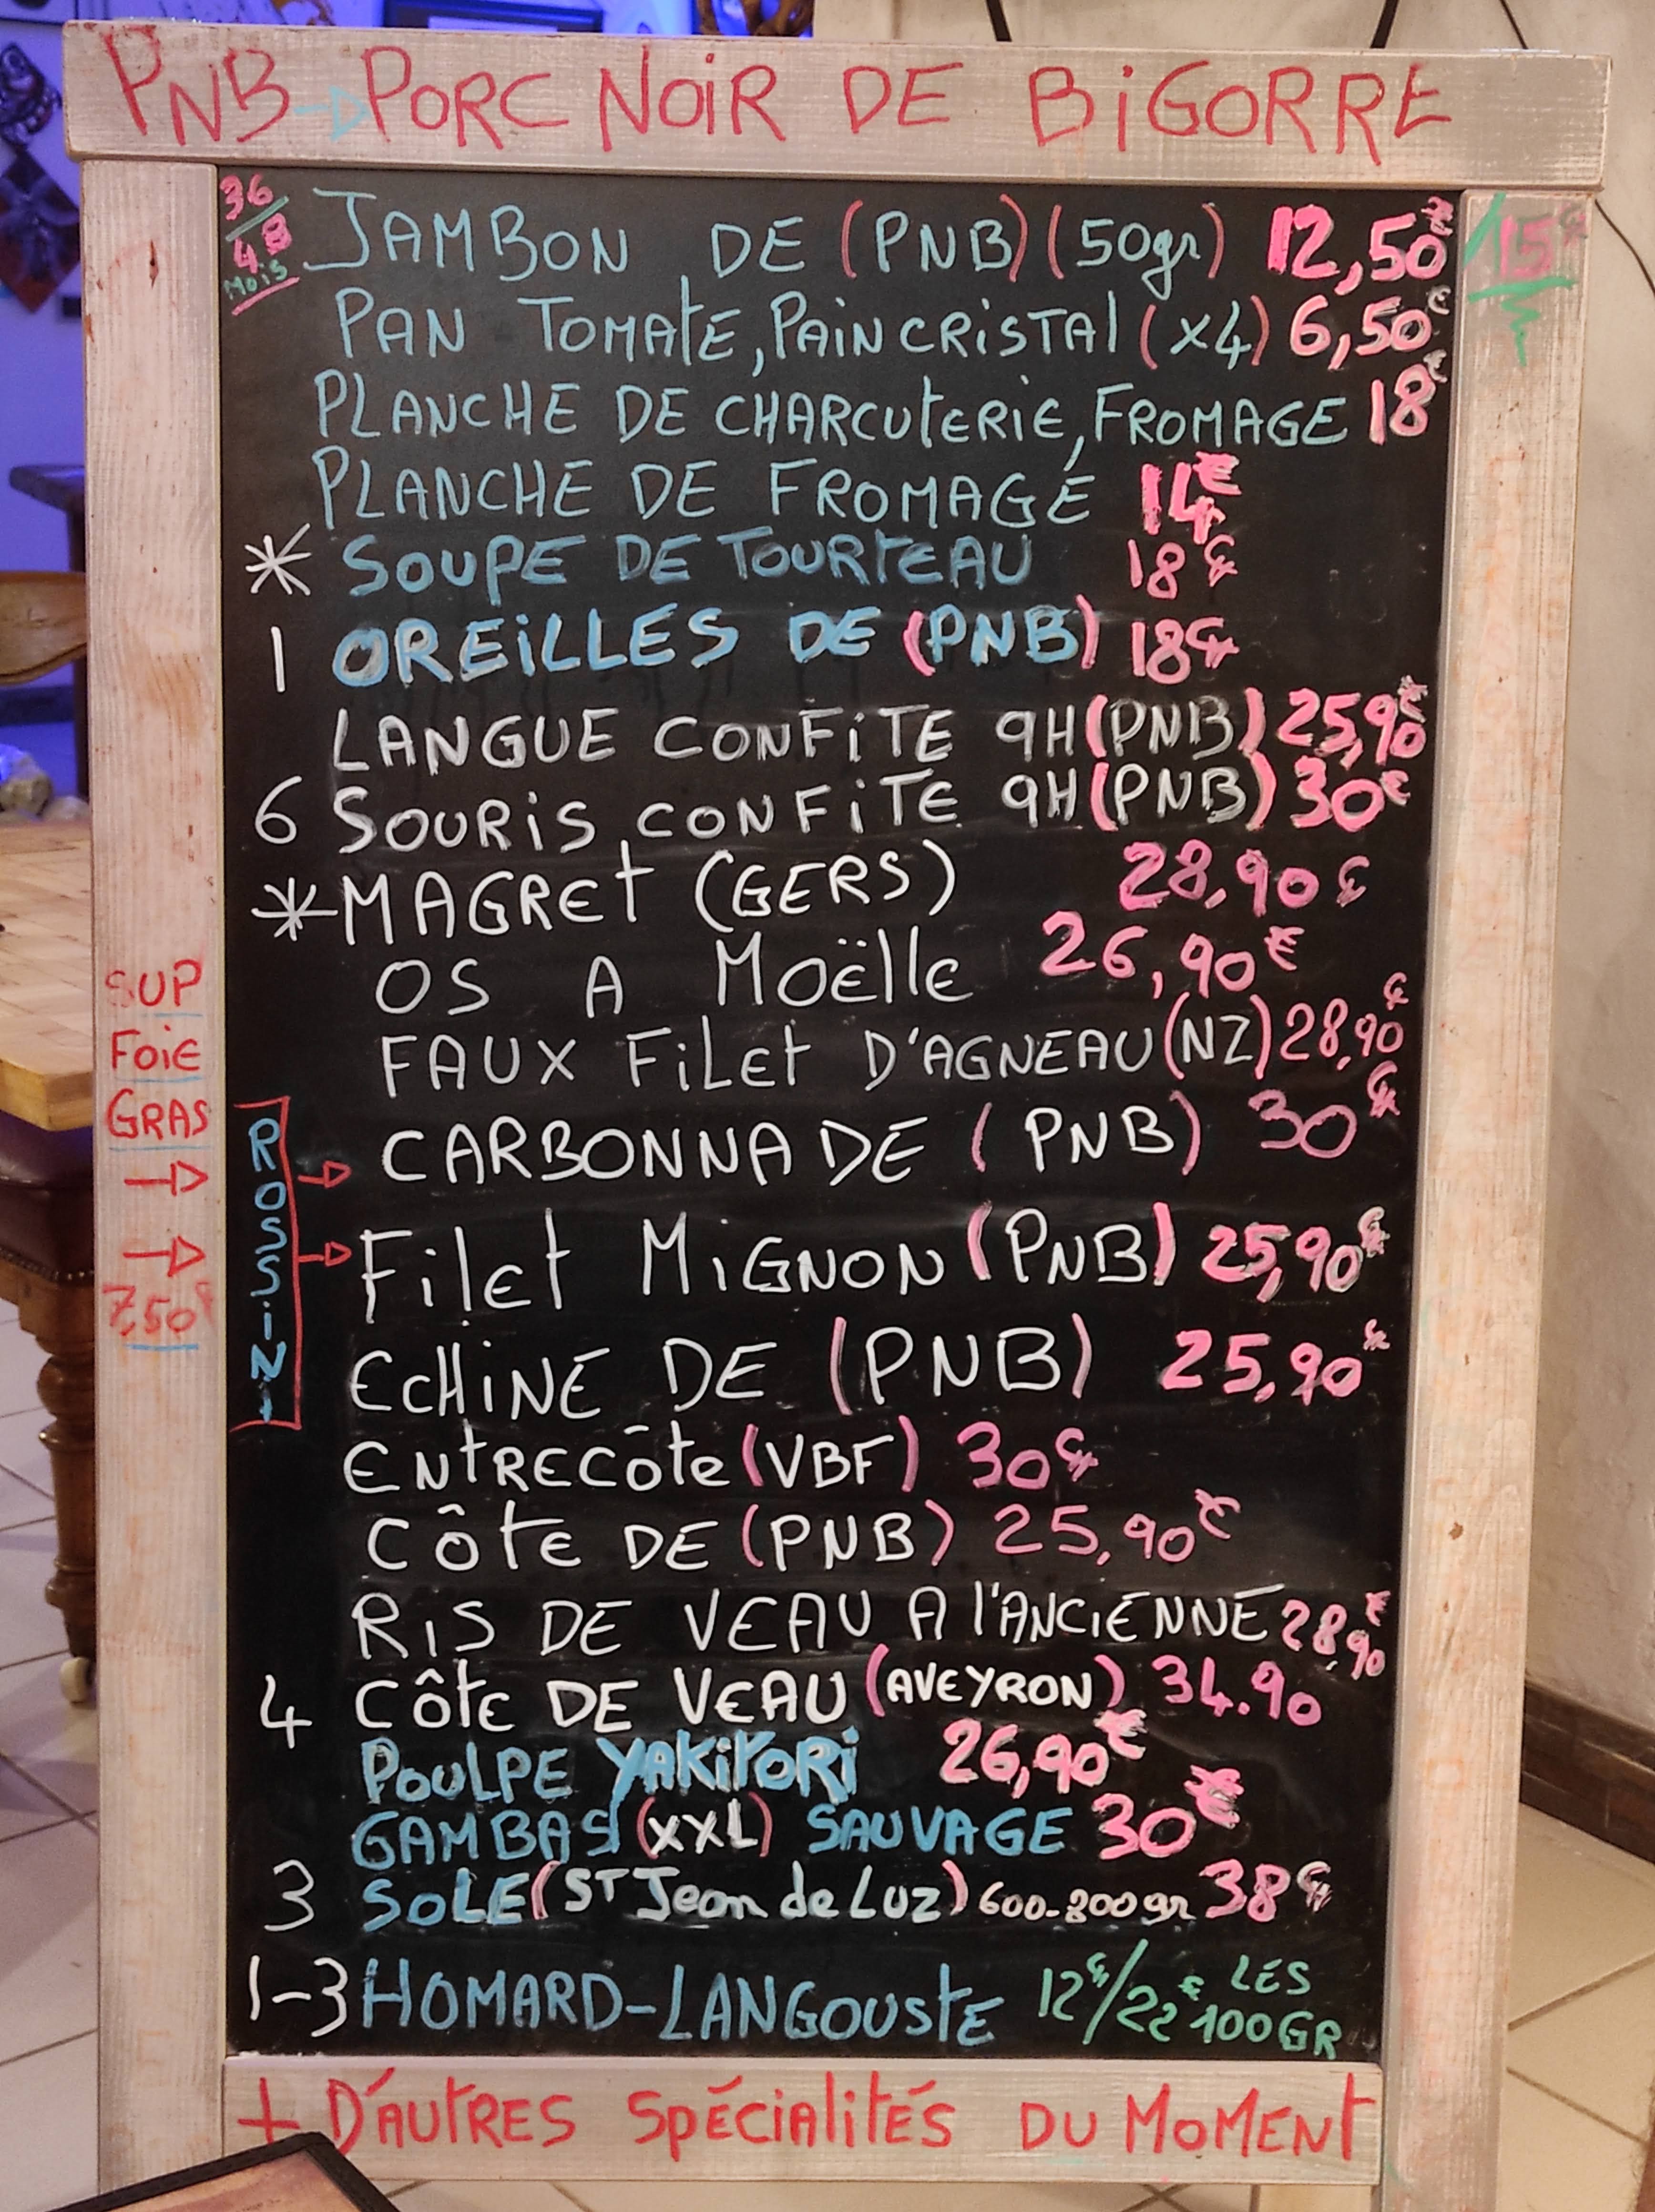 PNB → PORC NOIR DE BIGORRE
36/48 MOIS JAMBON DE (PNB) (50gr) 12,50€ /15€
PAN TOMATE, PAIN CRISTAL (x4) 6,50€
PLANCHE DE CHARCUTERIE, FROMAGE 18€
PLANCHE DE FROMAGE 14€
* SOUPE DE TOURTEAU 18€
1 OREILLES DE (PNB) 18€
LANGUE CONFITE 9H (PNB) 25,90€
6 SOURIS CONFITE 9H (PNB) 30€
* MAGRET (GERS) 28,90€
OS A MOËLLE 26,90€
FAUX FILET D'AGNEAU (NZ) 28,90€
SUP
FOIE
GRAS
→
→
7,50€
ROSSINI
→ CARBONNADE (PNB) 30€
→ FILET MIGNON (PNB) 25,90€
ECHINE DE (PNB) 25,90€
ENTRECÔTE (VBF) 30€
CÔTE DE (PNB) 25,90€
RIS DE VEAU A L'ANCIENNE 28,90€
4 CÔTE DE VEAU (AVEYRON) 34.90
POULPE YAKITORI 26,90€
GAMBAS (XXL) SAUVAGE 30€
3 SOLE (ST Jean de Luz) 600-800gr 38€
1-3 HOMARD-LANGOUSTE 12€/22€ LES 100GR
+ D'AUTRES SPÉCIALITÉS DU MOMENT